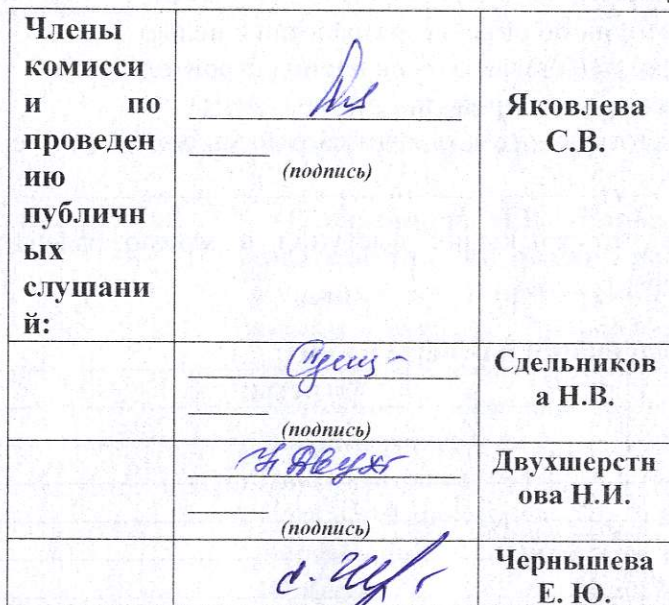 Члены
комисси
и по
проведен
ию
публичн
ых
слушани
й:
(подпись)
Яковлева
С.В.
(подпись)
Сдельников
а Н.В.
(подпись)
Двухшерстн
ова Н.И.
Чернышева
Е. Ю.